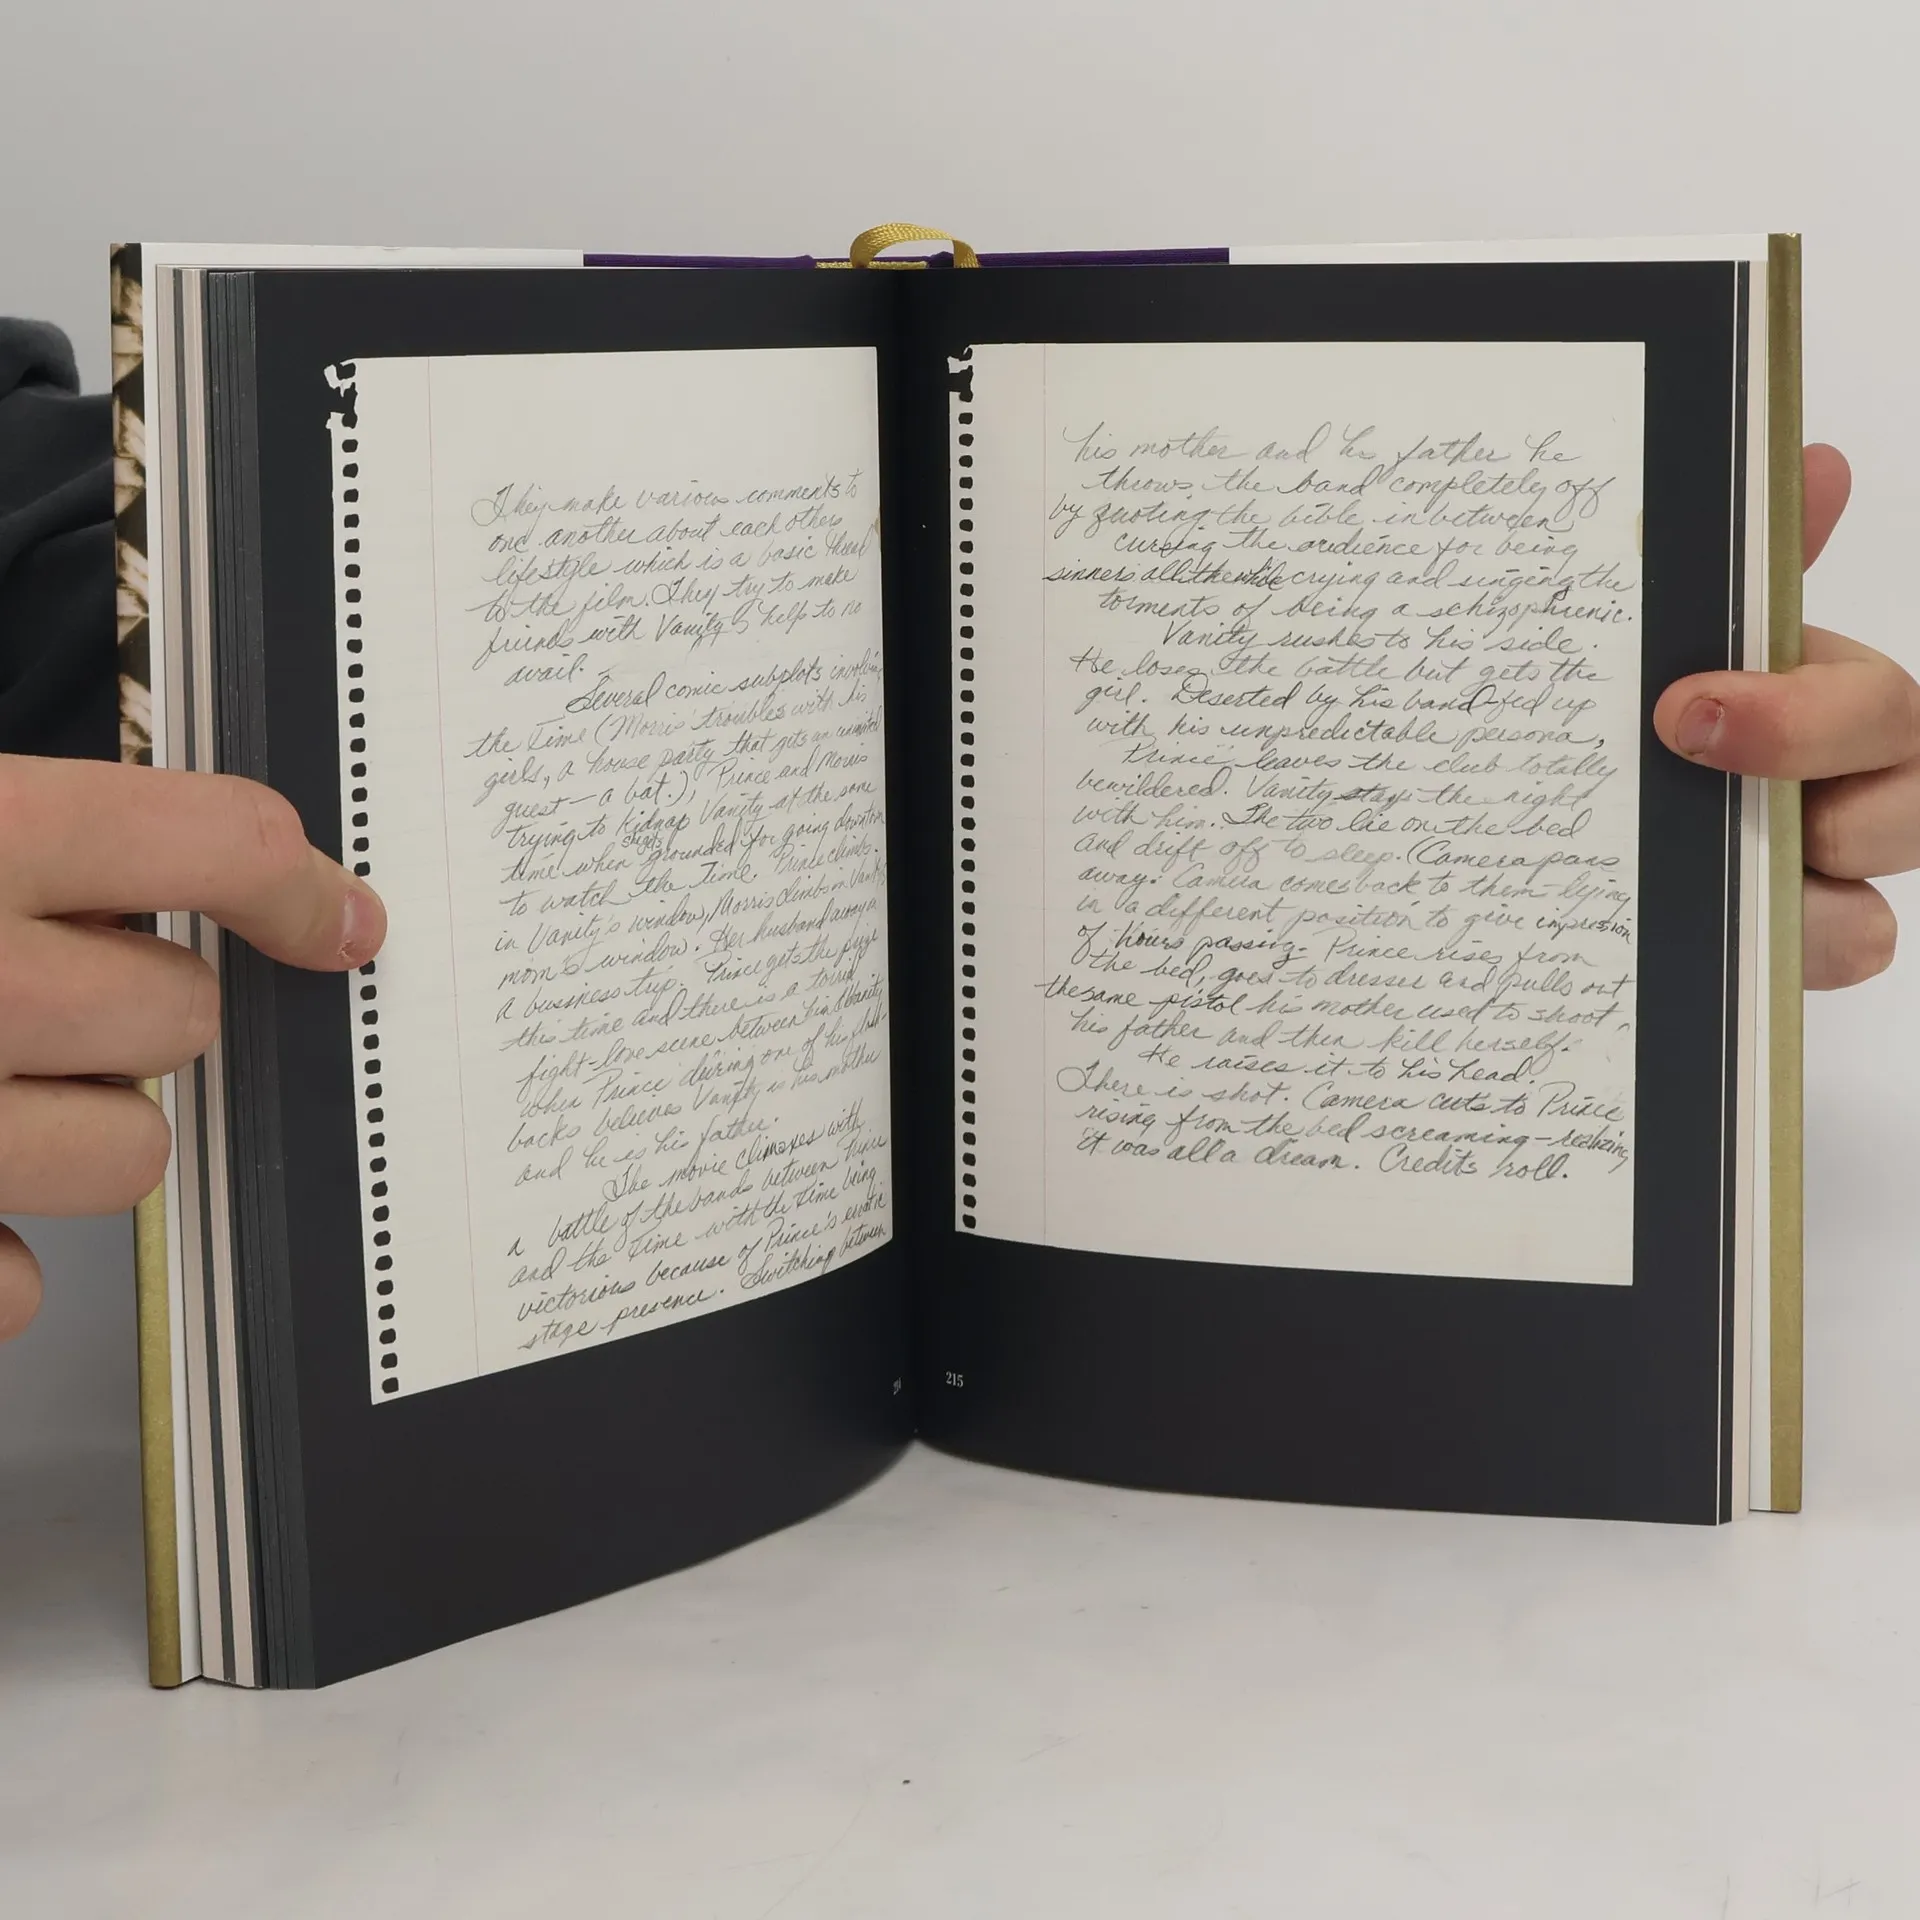 They make various comments to
one another about each others
lifestyle which is a basic thread
to the film. They try to make
friends with Vanity's help to no
avail.
Several comic subplots involving
the Time (Morris' troubles with his
girls, a house party that gets an uninvited
guest — a bat.), Prince and Morris
trying to kidnap Vanity at the same
time when she gets grounded for going downtown
to watch the Time. Prince climbs
in Vanity's window, Morris climbs in Vanity's
mom's window. Her husband away on
a business trip. Prince gets the prize
this time and there is a torrid
fight-love scene between him & Vanity
when Prince during one of his flash-
backs believes Vanity is his mother
and he is his father.
The movie climaxes with
a battle of the bands between Prince
and the Time with the Time being
victorious because of Prince's erratic
stage presence. Switching between
his mother and his father he
throws the band completely off
by quoting the bible in between
cursing the audience for being
sinners all the while crying and singing the
torments of being a schizophrenic.
Vanity rushes to his side.
He loses the battle but gets the
girl. Deserted by his band-fed up
with his unpredictable persona,
Prince leaves the club totally
bewildered. Vanity stays the night
with him. The two lie on the bed
and drift off to sleep. (Camera pans
away. Camera comes back to them-lying
in a different position to give impression
of hours passing. Prince rises from
the bed, goes to dresser and pulls out
the same pistol his mother used to shoot
his father and then kill herself.
He raises it to his head.
There is shot. Camera cuts to Prince
rising from the bed screaming-realizing
it was all a dream. Credits roll.
215